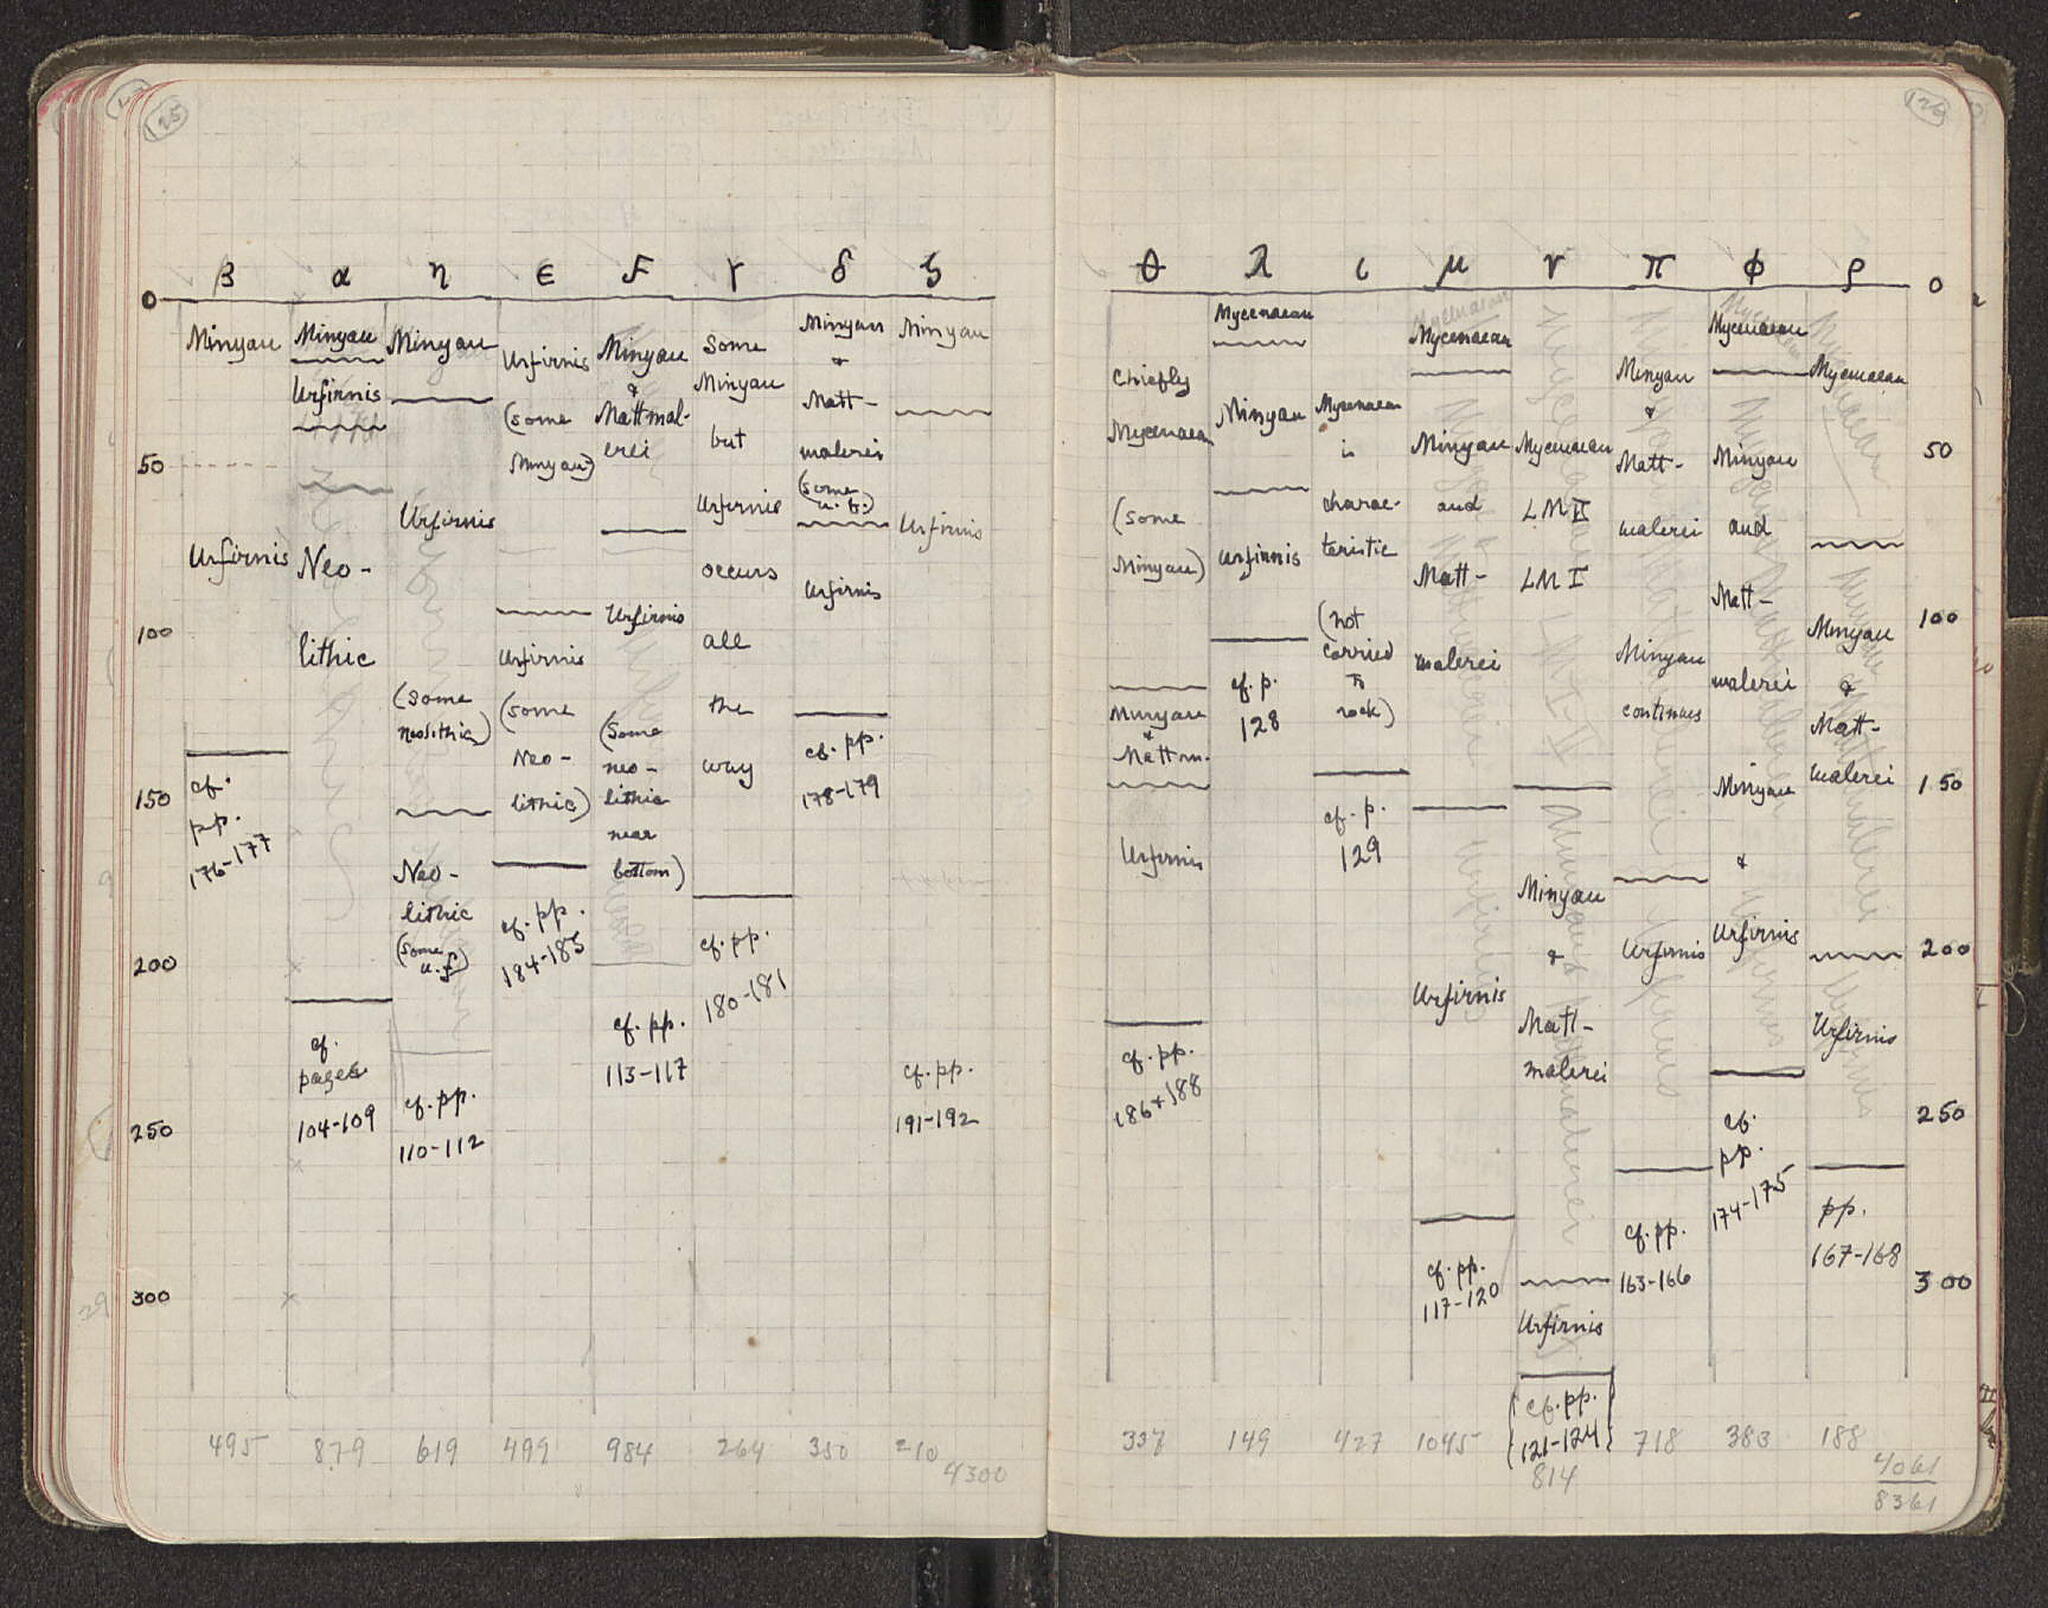 125
β α η ε Ϝ γ δ ζ
0
50
100
150
200
250
300
Minyan
Urfirnis
cf.
pp.
176-177
495
Minyan
Urfirnis
Neo-
lithic
cf.
pages
104-109
879
Minyan
Urfirnis
(some
neolithic)
Neo-
lithic
(some
u.f)
cf. pp.
110-112
619
Urfirnis
(some
Minyan)
Urfirnis
(some
Neo-
lithic)
cf. pp.
184-185
499
Minyan
&
Mattmal-
erei
Urfirnis
(Some
neo-
lithic
near
bottom)
cf. pp.
113-117
984
Some
Minyan
but
Urfirnis
occurs
all
the
way
cf. pp.
180-181
264
Minyan
&
Matt-
malerei
(some
u.f.)
Urfirnis
cf. pp.
178-179
350
Minyan
Urfirnis
cf. pp.
191-192
210
4300
126
θ λ ι μ ν π φ ρ
0
50
100
150
200
250
300
Chiefly
Mycenaean
(some
Minyan)
Minyan
&
Mattm.
Urfirnis
cf. pp.
186+188
337
Mycenaean
Minyan
Urfirnis
cf. p.
128
149
Mycenaean
is
charac-
teristic
(not
carried
to
rock)
cf. p.
129
427
Mycenaean
Mycenaean
Minyan
and
Matt-
malerei
Urfirnis
cf. pp.
117-120
1045
Mycenaean
LM II
LM I
Minyan
&
Matt-
malerei
Urfirnis
(cf. pp.
121-124)
814
Minyan
&
Matt-
malerei
Minyan
continues
Urfirnis
cf. pp.
163-166
718
Mycenaean
Minyan
and
Matt-
malerei
Minyan
&
Urfirnis
cf.
pp.
174-175
383
Mycenaean
Minyan
&
Matt-
malerei
Urfirnis
pp.
167-168
188
4061
8361